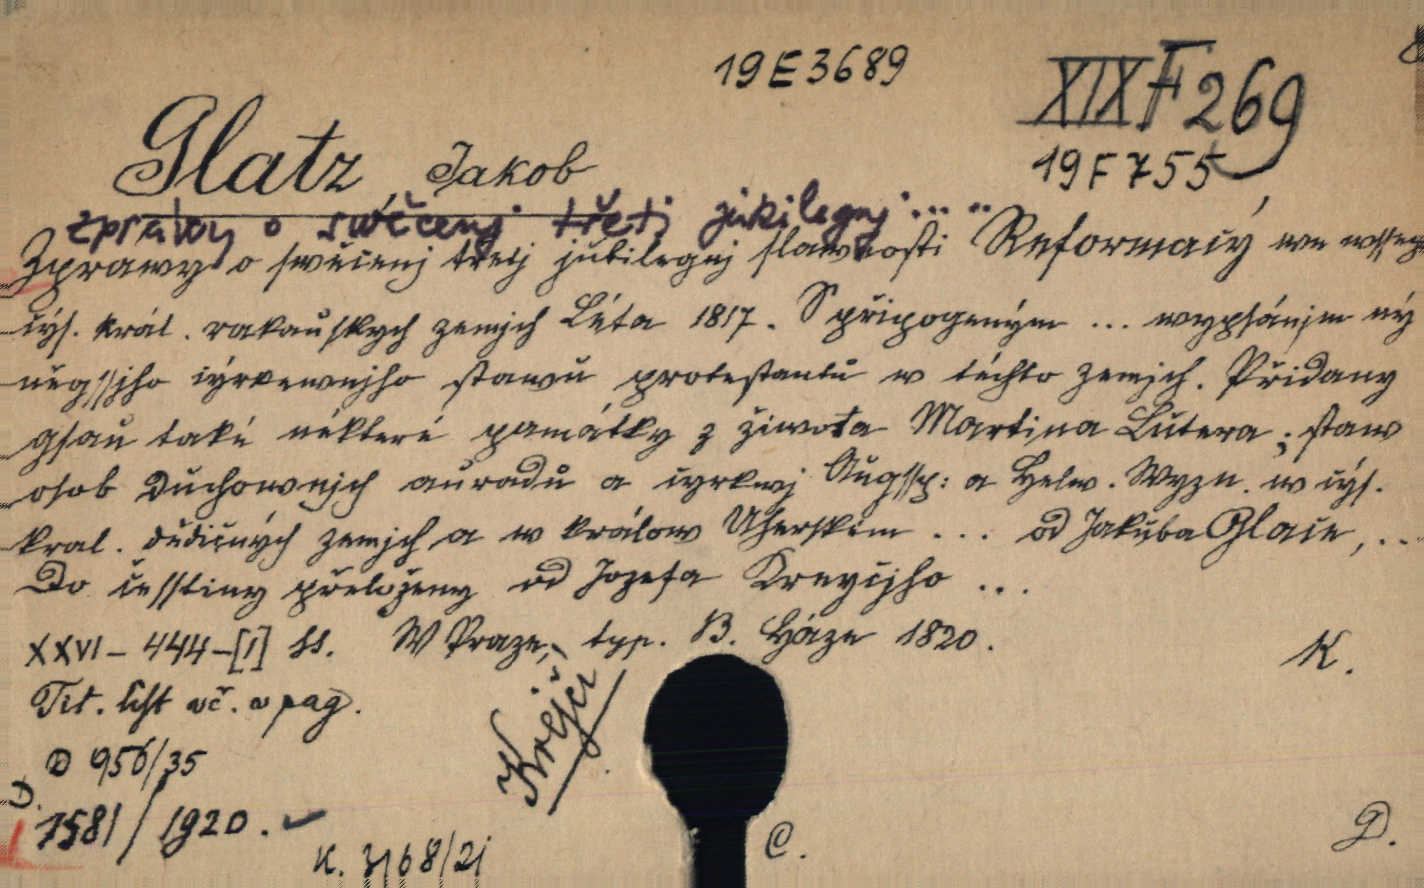 19 E 3689
XIX F 269
19 F 755
Glatz, Jakob
zprávy o swěcenj třetj jubilegnj ... ..
Zprawy o swěcenj třetj jubilegnj slawnosti Reformacý we wsseg
cýs. král. rakauskych zemjch Léta 1817. S připogeným ... wypsánjm ný
něgssjho cýrkewnjho stawu protestantů w těchto zemjch. Přidany
gsau také některé památky z žiwota Martina Lutera; staw
osob duchownjch auradů a cyrkwj Augssp: a Helw. Wyzn. w cýs.
kral. dědičných zemjch a w králow Uherském ... od Jakuba Glace, ..
Do čestiny přeloženy od Jozefa Kreycjho ...
XXVI - 444 - [1] ss. W Praze, typ. B. Háze 1820.
K.
Tit. list vč. v pag.
Krějčí
D 956/35
D.
7581/1920.
K. 3168/21
C.
D.